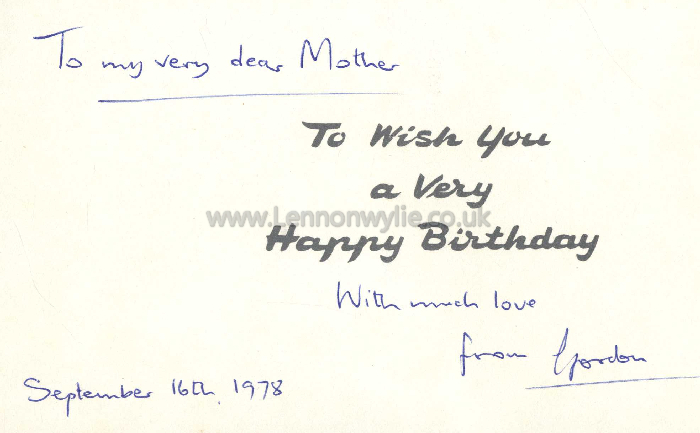 To my very dear Mother
To Wish You
a Very
www.Lennonwylie.co.uk
Happy Birthday
With much love
from Gordon
September 16th, 1978